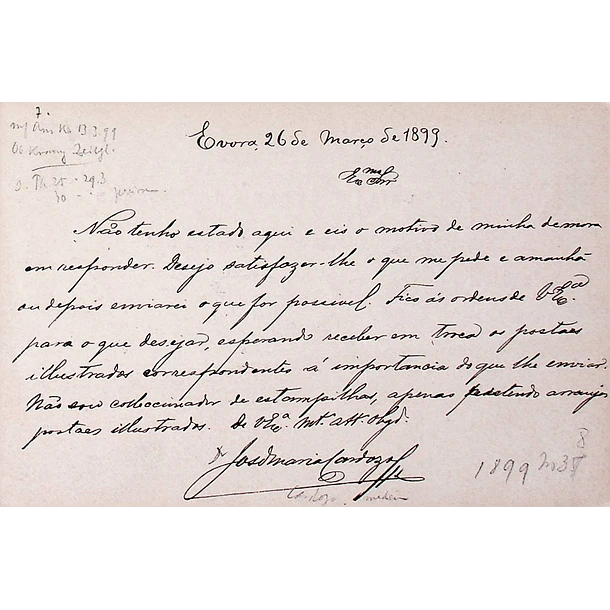 7.
13.3.99
29.3
Evora, 26 de Março de 1899.
Exmo Snr
Não tenho estado aqui e eis o motivo de minha demora
em responder. Desejo satisfazer-lhe o que me pede e amanhã
ou depois enviarei o que for possivel. Fico ás ordens de V. Exa
para o que desejar, esperando receber em troca os postaes
illustrados correspondentes á importancia do que lhe enviar.
Não sou colleccinador de estampilhas, apenas pretendo arranjar
postaes illustrados. De V. Exa Mto Atto Obgdo
Dr José Maria Cardozo
Cardozo
1899